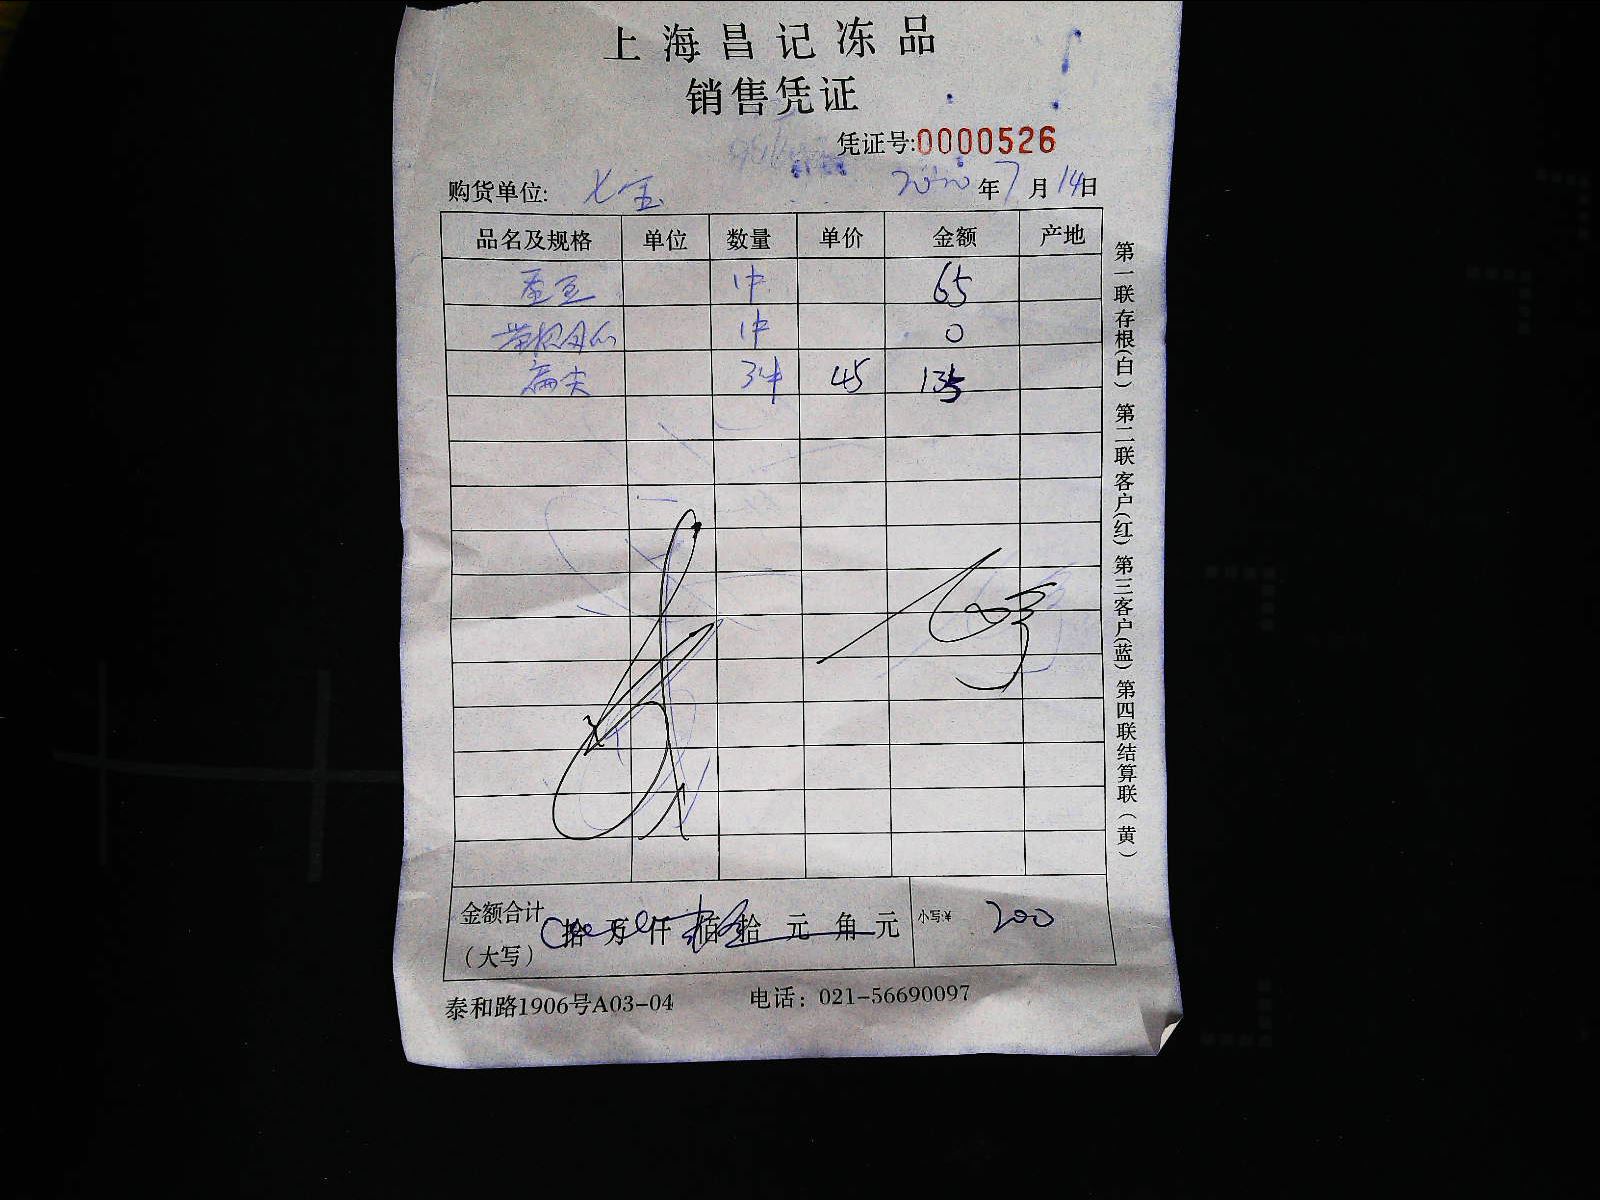 上海昌记冻品
销售凭证
凭证号:0000526
购货单位: 七宝 2020年7月14日
品名及规格 单位 数量 单价 金额 产地
蚕豆 1件 65
1件 0
扁尖 3件 45 135
金额合计 拾 万 仟 佰 拾 元 角 元 小写:¥ 200
(大写)
泰和路1906号A03-04 电话: 021-56690097
第一联存根(白) 第二联客户(红) 第三客户(蓝) 第四联结算联(黄)